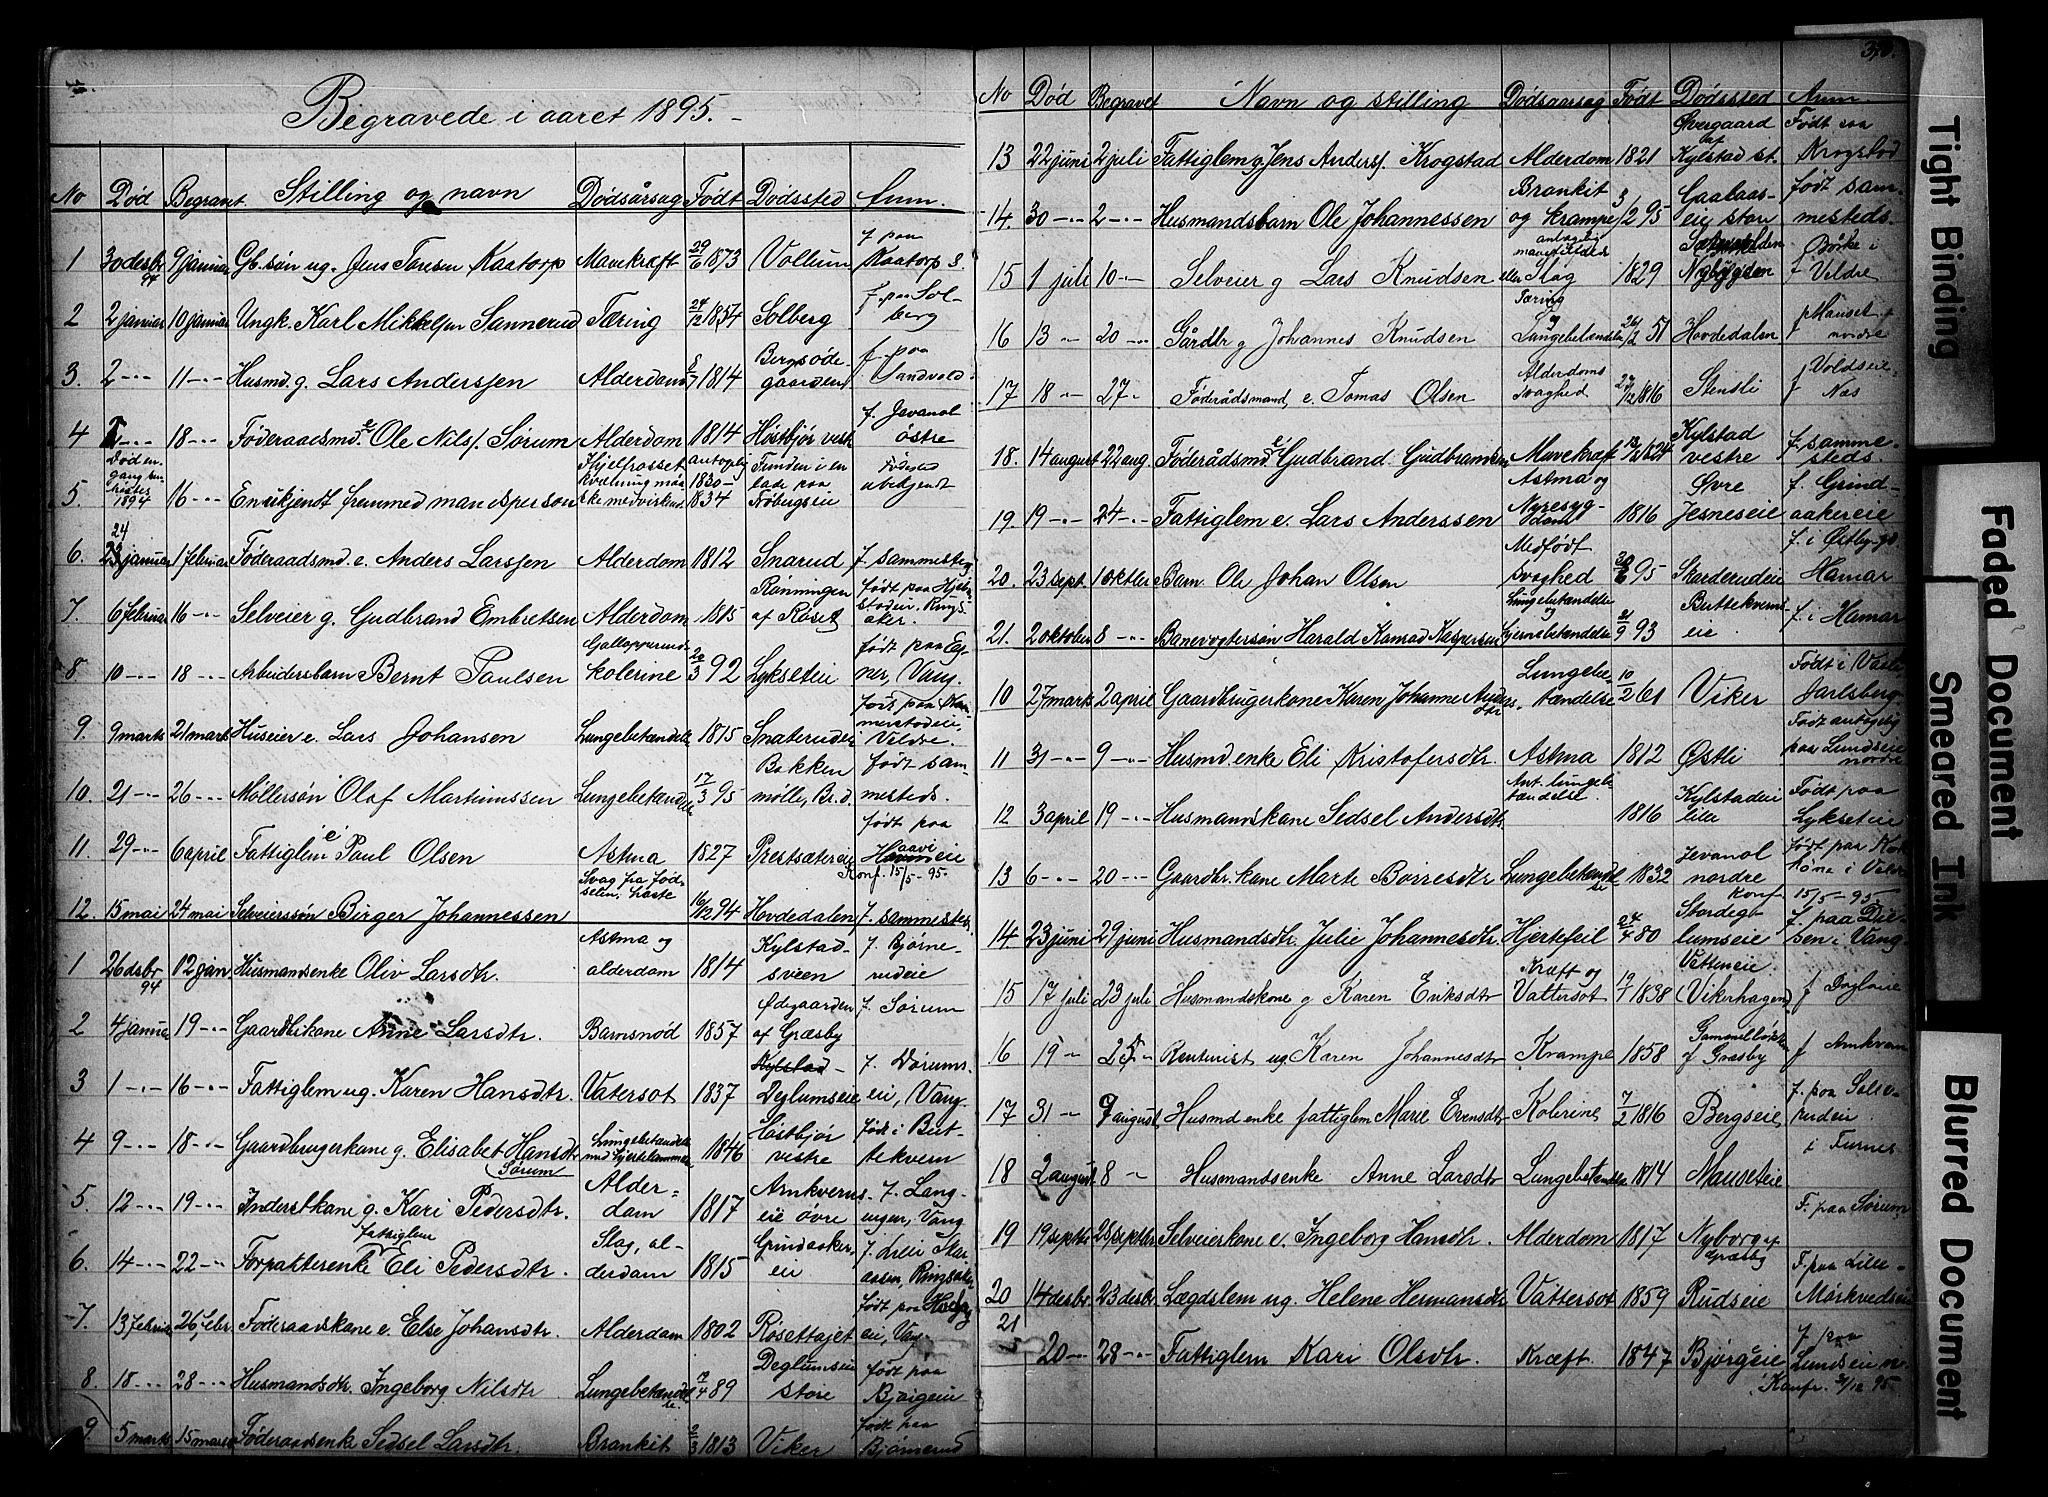 Begravede i aaret 1895.-
No Død Begravet Stilling og navn Dødsårsag Født Dødssted Anm.
1 30 desbr 94 9 januar Gb. søn ug. Jens Toresen Kaatorp Mavekræft 29/6 1873 Vollum f. paa Kaatorp s.
2 2 januar 10 januar Ungk. Karl Mikkelsen Sannerud Tæring 24/12 1854 Solberg f. paa Solberg
3. 2 -"- 11 -"- Husmd. g. Lars Anderssen Alderdom 1814 Bergsødegaarden f. paa Sandvold
4 -"- 18 -"- Føderaadsmd. e Ole Nils. Sørum Alderdom 1814 Høstbjør vest f. Jevanol østre
5. Død en gang 1894 16 -"- En ukjendt fremmed mandsperson Ihjelfrosset kvælning maaske medvirkende antagelig 1830-1834 Funden i en lade paa Føbergseie Fødested ubekjendt
6. 24 januar 1 februar Føderaadsmd. e. Anders Larssen Alderdom 1812 Snarud f. sammesteds
7. 6 februar 16 -"- Selveier g. Gudbrand Embretsen Alderdom 1815 Rønningen af Røset født paa Hjelmstadeie, Ringsaker.
8 10 -"- 18 -"- Arbeidersbarn Bernt Paulsen kolerine 92 Lykseteie født paa Vang.
9. 9 marts 21 marts Huseier e. Lars Johansen Lungebetændelse 1815 Snaterudeie født paa Veldre.
10. 21 -"- 26 -"- Møllersøn Olaf Martinussen Lungebetændelse 17/3 95 Bakken mølle, Br.d. født sammesteds.
11. 29 -"- 6 april Fattiglem e Paul Olsen Astma 1827 Prestsætereie født paa
Konf. 15/5-95.
12. 15 mai 24 mai Selveierssøn Birger Johannessen Svag fra fødselen, hoste 16/12 94 Hovdedalen f. sammesteds
1 26 desbr 94 02 jan Husmandsenke Oliv Larsdtr. Astma og alderdom 1814 Kylstadsveen f. Bjørnerudeie
2 4 januar 19 -"- Gaardbrkone Anne Larsdtr. Barnsnød 1857 Ødegaarden af Græsby f. Sørum
3 1 -"- 16 -"- Fattiglem ug. Karen Hansdtr. Vatersot 1837 Kylstad - Deglumseie f. Dørumseie, Vang.
4 9 -"- 18 -"- Gaardbrugerkone g. Elisabet Hansdtr Sørum Lungebetændelse med hjertelammelse 1846 Høstbjør vestre født i Buttekvern
5. 12 -"- 19 -"- Inderstkone g. Kari Pedersdtr. Alderdom 1817 Arnkvernseie øvre f. Langengen, Vang
6. 14 -"- 22 -"- Forpakterenke fattiglem Eli Pedersdtr. Slag, alderdom 1815 Grindaakereie f. Ringsaker
7. 13 februar 26 febr. Føderaadskone e. Else Johansdtr. Alderdom 1802 Røsettajet født paa eie, Vang
8. 18 -"- 28 -"- Husmandsdtr. Ingeborg Nilsdtr Lungebetændelse 89 Deglumseie store født paa Bjørgeeie
9. 5 marts 15 marts Føderaadsenke Sedsel Larsdtr. Brankit 1813 Viker født paa Bjørnerud
No Død Begravet Navn og stilling Dødsaarsag Født Dødssted Anm.
13 22 juni 2 juli Fattiglem g Jens Anders. Krogstad Alderdom 1821 Øvergaard af Kylstad st. Født paa Krogstad
14. 30 -"- 2 -"- Husmandsbarn Ole Johannessen Brankit og krampe 3/2 95 Gaalaaseie stor født sammesteds.
15 1 juli 10 -"- Selveier g Lars Knudsen antagelig mavetilfælde eller Slag 1829 Nybygden f Børke i Veldre
16 13 " 20 -"- Gårdbr g Johannes Knudsen Tæring og Lungebetændelse 26/2 51 Hovdedalen f Mauset nordre
17 18 " 27 " Føderådsmand, e. Tomas Olsen Alderdomssvaghed 27/12 1816 Stensli f Voldseie Næs
18. 14 august 22 aug. Føderådsmd. e Gudbrand Gudbrandsen Mavekræft 1824 Kylstad vestre f. sammesteds.
19. 19 -"- 24 -"- Fattiglem e. Lars Anderssen Astma og Nyresygdom 1816 Øvre Jesneseie f. Grindaakereie
20. 23 sept. 1 oktbr Barn Ole Johan Olsen Medfødt svaghed 95 Skarderudeie f. i Østby Hamar
21. 2 oktober 8 -"- Banevogtersøn Harald Konrad Kaspersen Lungebetændelse og hjernebetændelse 93 Buttekverneie f. i Hamar
10 27 marts 2 april Gaardbrugerkone Karen Johanne Andersdtr. Lungebetændelse 10/2 61 Viker Født i Vaale Jarlsberg
11 31 -"- 9 -"- Husmd enke Eli Kristofersdtr. Astma 1812 Østli Født antagelig paa Lundseie nordre
12 3 april 19 -"- Husmannskone Sedsel Andersdtr Ant. lungebetændelse. 1816 Kylstadeie lille Født paa Lykseteie
13 6 -"- 20 -"- Gaardbr. kone Marte Børresdtr Lungebetændelse 1832 Jevanol nordre født paa i Veldre
Konf 15/5-95.
14. 23 juni 29 juni Husmandsdtr. Julie Johannesdtr. Hjertefeil 24/4 80 Stordeglumseie f. paa i Vang
15 17 juli 23 juli Husmandskone g Karen Eriksdtr Kræft og Vattersot 19/7 1838 Vetteneie (Vikerhagen) f
16 19 " 25 " Renterist ug. Karen Johannesdtr Krampe 1858 Gammelløkken af Græsby f Arnkvern
17 31 " 9 august Husmd enke fattiglem Marie Evensdtr Kolrine 7/2 1816 Bergseie f. paa i Furnes
18 2 august 8 " Husmandsenke Anne Larsdtr Lungebetændelse 1814 Mauseteie
19 19 septbr 28 septbr Selveierskone e. Ingeborg Hansdtr. Alderdom 1817 Nyborg af Græsby F. paa Sørum
20 14 desbr 23 desbr Lægdslem ug. Helene Hermansdtr Vattersot 1859 Rudseie F. paa Lille-Mørkvedseie
21 20 -"- 28 -"- Fattiglem Kari Olsdtr. Kræft. 1847 Bjørgeeie f. paa Lundseie n.
Konfr. 31/12 95
Tight Binding
Faded Document
Smeared Ink
Blurred Document